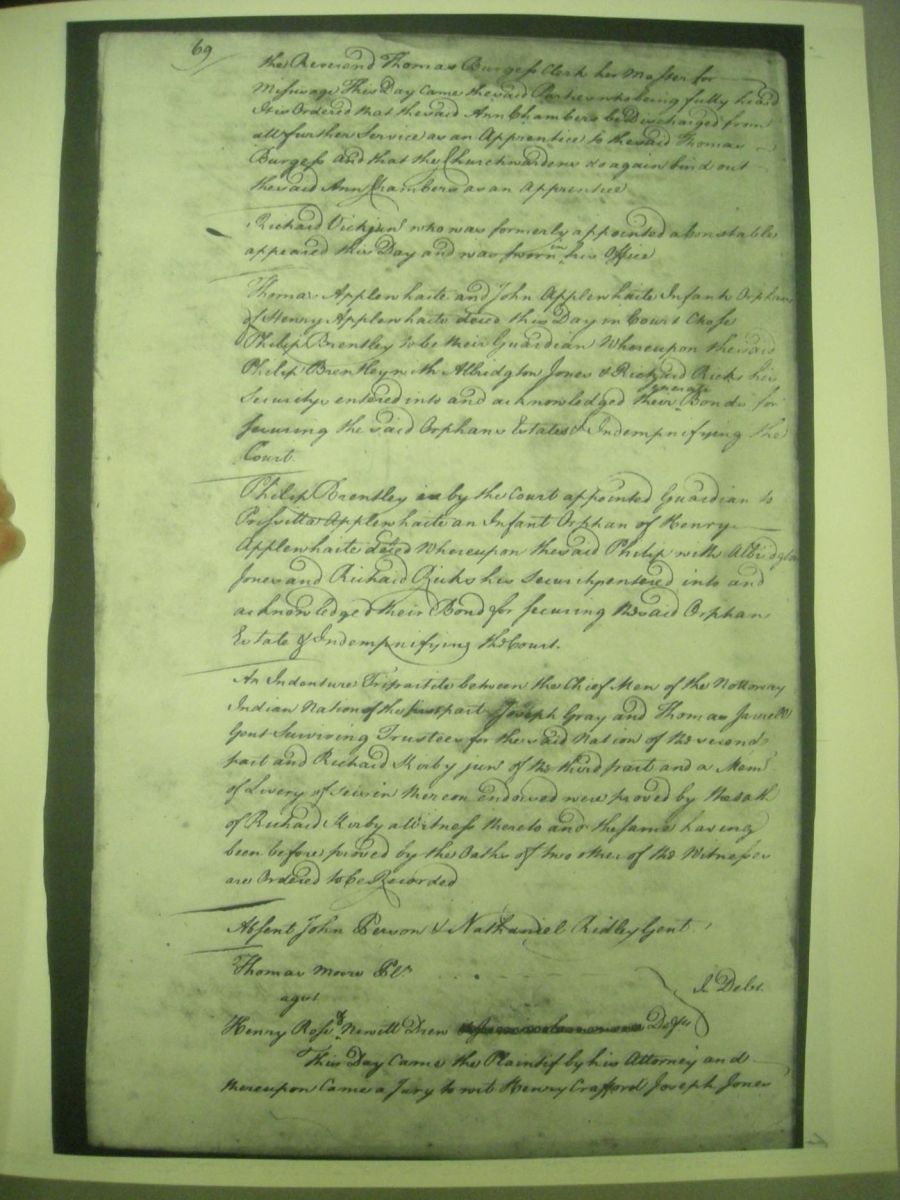 69
the Reverend Thomas Burgess Clerk her Master for
Misusage This Day came the said Parties who being fully heard
It is Ordered that the said Ann Chambers be Discharged from
all further Service as an Apprentice to the said Thomas
Burgess and that the Churchwardens do again bind out
the said Ann Chambers as an Apprentice
Richard Vick junr who was formerly appointed a Constable
appeared this Day and was sworn in his Office
Thomas Applewhaite and John Applewhaite Infant Orphans
of Henry Applewhaite deced this Day in Court Chose
Philip Brentley to be their Guardian Whereupon the said
Philip Brentley with Albridgton Jones & Richard Ricks his
Securitys entered into and acknowledged their Bonds for
securing the said Orphans Estates & Indempnifying the
Court
Philip Brentley is by the Court appointed Guardian to
Prissilla Applewhaite an Infant Orphan of Henry
Applewhaite deced Whereupon the said Philip with Albridgton
Jones and Richard Ricks his Securitys entered into and
acknowledged their Bond for securing the said Orphan
Estate & Indempnifying the Court.
An Indenture Tripartite between the Chief Men of the Nottoway
Indian Nation of the first part Joseph Gray and Thomas Jarrell
Gent Surviving Trustees for the said Nation of the second
part and Richard Kirby junr of the third part and a Memd
of Livery of seisin thereon endorsed were proved by the Oath
of Richard Kirby a Witness thereto and the same having
been before proved by the Oaths of two other of the Witnesses
are Ordered to be Recorded
Absent John Person & Nathaniel Ridley Gent
Thomas Moore Plt
agst In Debt.
Henry Rose & Newitt Drew Defts
This Day Came the Plaintif by his Attorney and
thereupon Came a Jury to wit Henry Crafford Joseph Jones